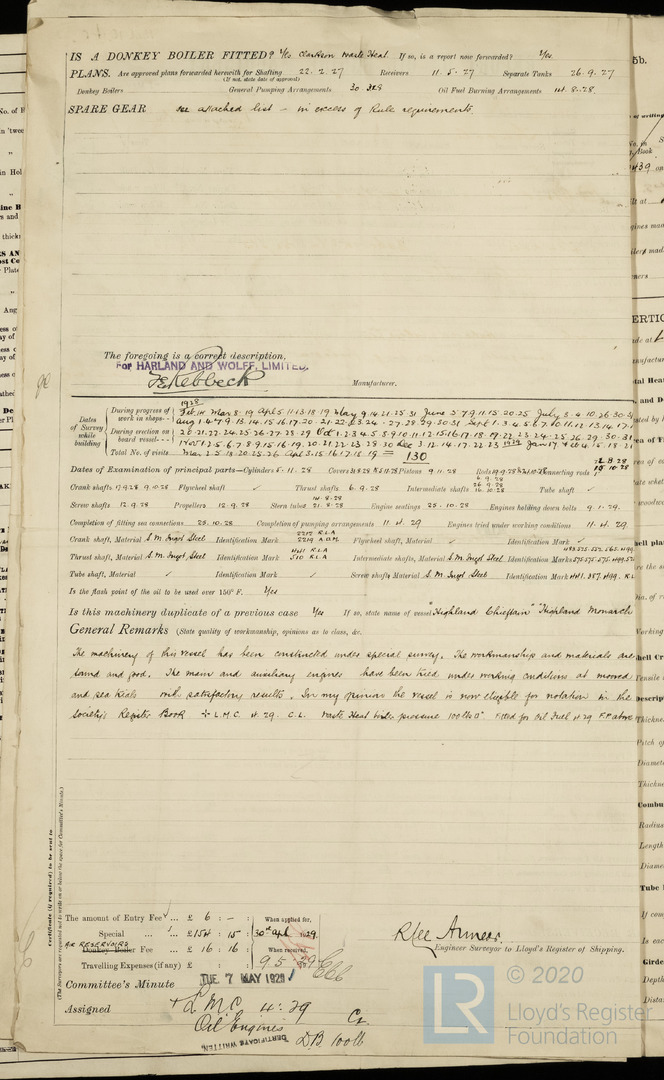 IS A DONKEY BOILER FITTED? Yes Clarkson Waste Heat If so, is a report now forwarded? Yes
PLANS. Are approved plans forwarded herewith for Shafting 22.2.27 Receivers 11.5.27 Separate Tanks 26.9.27
(If not, state date of approval)
Donkey Boilers General Pumping Arrangements 30.3.28 Oil Fuel Burning Arrangements 14.8.28
SPARE GEAR see attached list – in excess of Rule requirements.
The foregoing is a correct description,
For HARLAND AND WOLFF, LIMITED.
FERebbeck
Manufacturer.
Dates of Survey while building
1928
During progress of work in shops - - Feb.14 Mar 8.19 Apl 5.11.13.18.19 May 9.14.21.25.31 June 5.7.9.11.15.20.25 July 3.4.10.26.30.31
Aug 1.4.7.9.13.14.15.16.17.20.21.22.23.24.27.28.29.30.31 Sept 1.3.4.5.6.7.10.11.12.13.14.17.
During erection on board vessel - - - 20.21.22.24.25.26.27.28.29 Oct 1.2.3.4.5.8.9.10.11.12.15.16.17.18.19.22.23.24.25.26.29.30.31
Nov 1.2.5.6.7.8.9.15.16.19.20.21.22.23.28.30 Dec 3.12.14.17.22.23 1929 Jan 17
Total No. of visits Mar 2.5.18.20.25.26 Apl 3.15.16.17.18.19 = 130
Dates of Examination of principal parts—Cylinders 5.11.28 Covers Pistons 9.11.28 Rods Connecting rods
Crank shafts 17.9.28 9.10.28 Flywheel shaft ✓ Thrust shafts 6.9.28 Intermediate shafts 6.9.28 26.9.28 16.10.28 Tube shaft ✓
Screw shafts 12.9.28 Propellers 12.9.28 Stern tubes 14.8.28 21.8.28 Engine seatings 25.10.28 Engines holding down bolts 9.1.29.
Completion of fitting sea connections 25.10.28 Completion of pumping arrangements 11.4.29 Engines tried under working conditions 11.4.29
Crank shaft, Material S.M. Ingot Steel Identification Mark 2215 R.L.A 2219 A.D.M. Flywheel shaft, Material ✓ Identification Mark ✓
Thrust shaft, Material S.M. Ingot Steel Identification Mark 4411 R.L.A 510 R.L.A Intermediate shafts, Material S.M. Ingot Steel Identification Marks
Tube shaft, Material ✓ Identification Mark ✓ Screw shafts Material S.M. Ingot Steel Identification Mark
Is the flash point of the oil to be used over 150° F. Yes
Is this machinery duplicate of a previous case Yes If so, state name of vessel "Highland Chieftain" "Highland Monarch
General Remarks (State quality of workmanship, opinions as to class, &c.
The machinery of this vessel has been constructed under special survey. The workmanship and materials are
sound and good. The main and auxiliary engines have been tried under working conditions at moored
and sea trials with satisfactory results. In my opinion the vessel is now eligible for notation in the
Society's Register Book + L.M.C. 4.29. C.L. Waste Heat boiler pressure 100 lb □". Fitted for Oil Fuel 4.29 F.P. above
Certificate (if required) to be sent to
(The Surveyors are requested not to write on or below the space for Committee's Minute.)
The amount of Entry Fee ... £ 6 : - : When applied for,
Special ... £ 154 : 15 : 30th Apl 1929.
AIR RESERVOIRS
Donkey Boiler Fee ... £ 16 : 16 : When received,
Travelling Expenses (if any) £ : : 9 5 29
Engineer Surveyor to Lloyd's Register of Shipping.
Committee's Minute TUE. 7 MAY 1929
Assigned + L.M.C 4.29
Oil Engines CL
DB 100 lb
CERTIFICATE WRITTEN.
LR © 2020
Lloyd's Register
Foundation